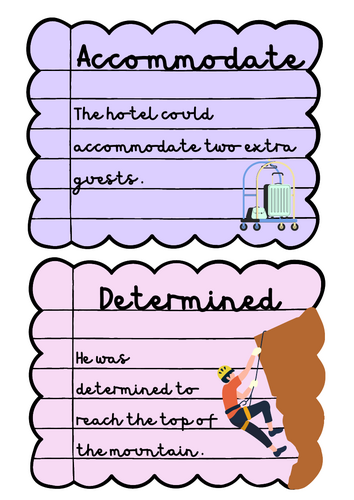 Accommodate
The hotel could
accommodate two extra
guests.
Determined
He was
determined to
reach the top of
the mountain.